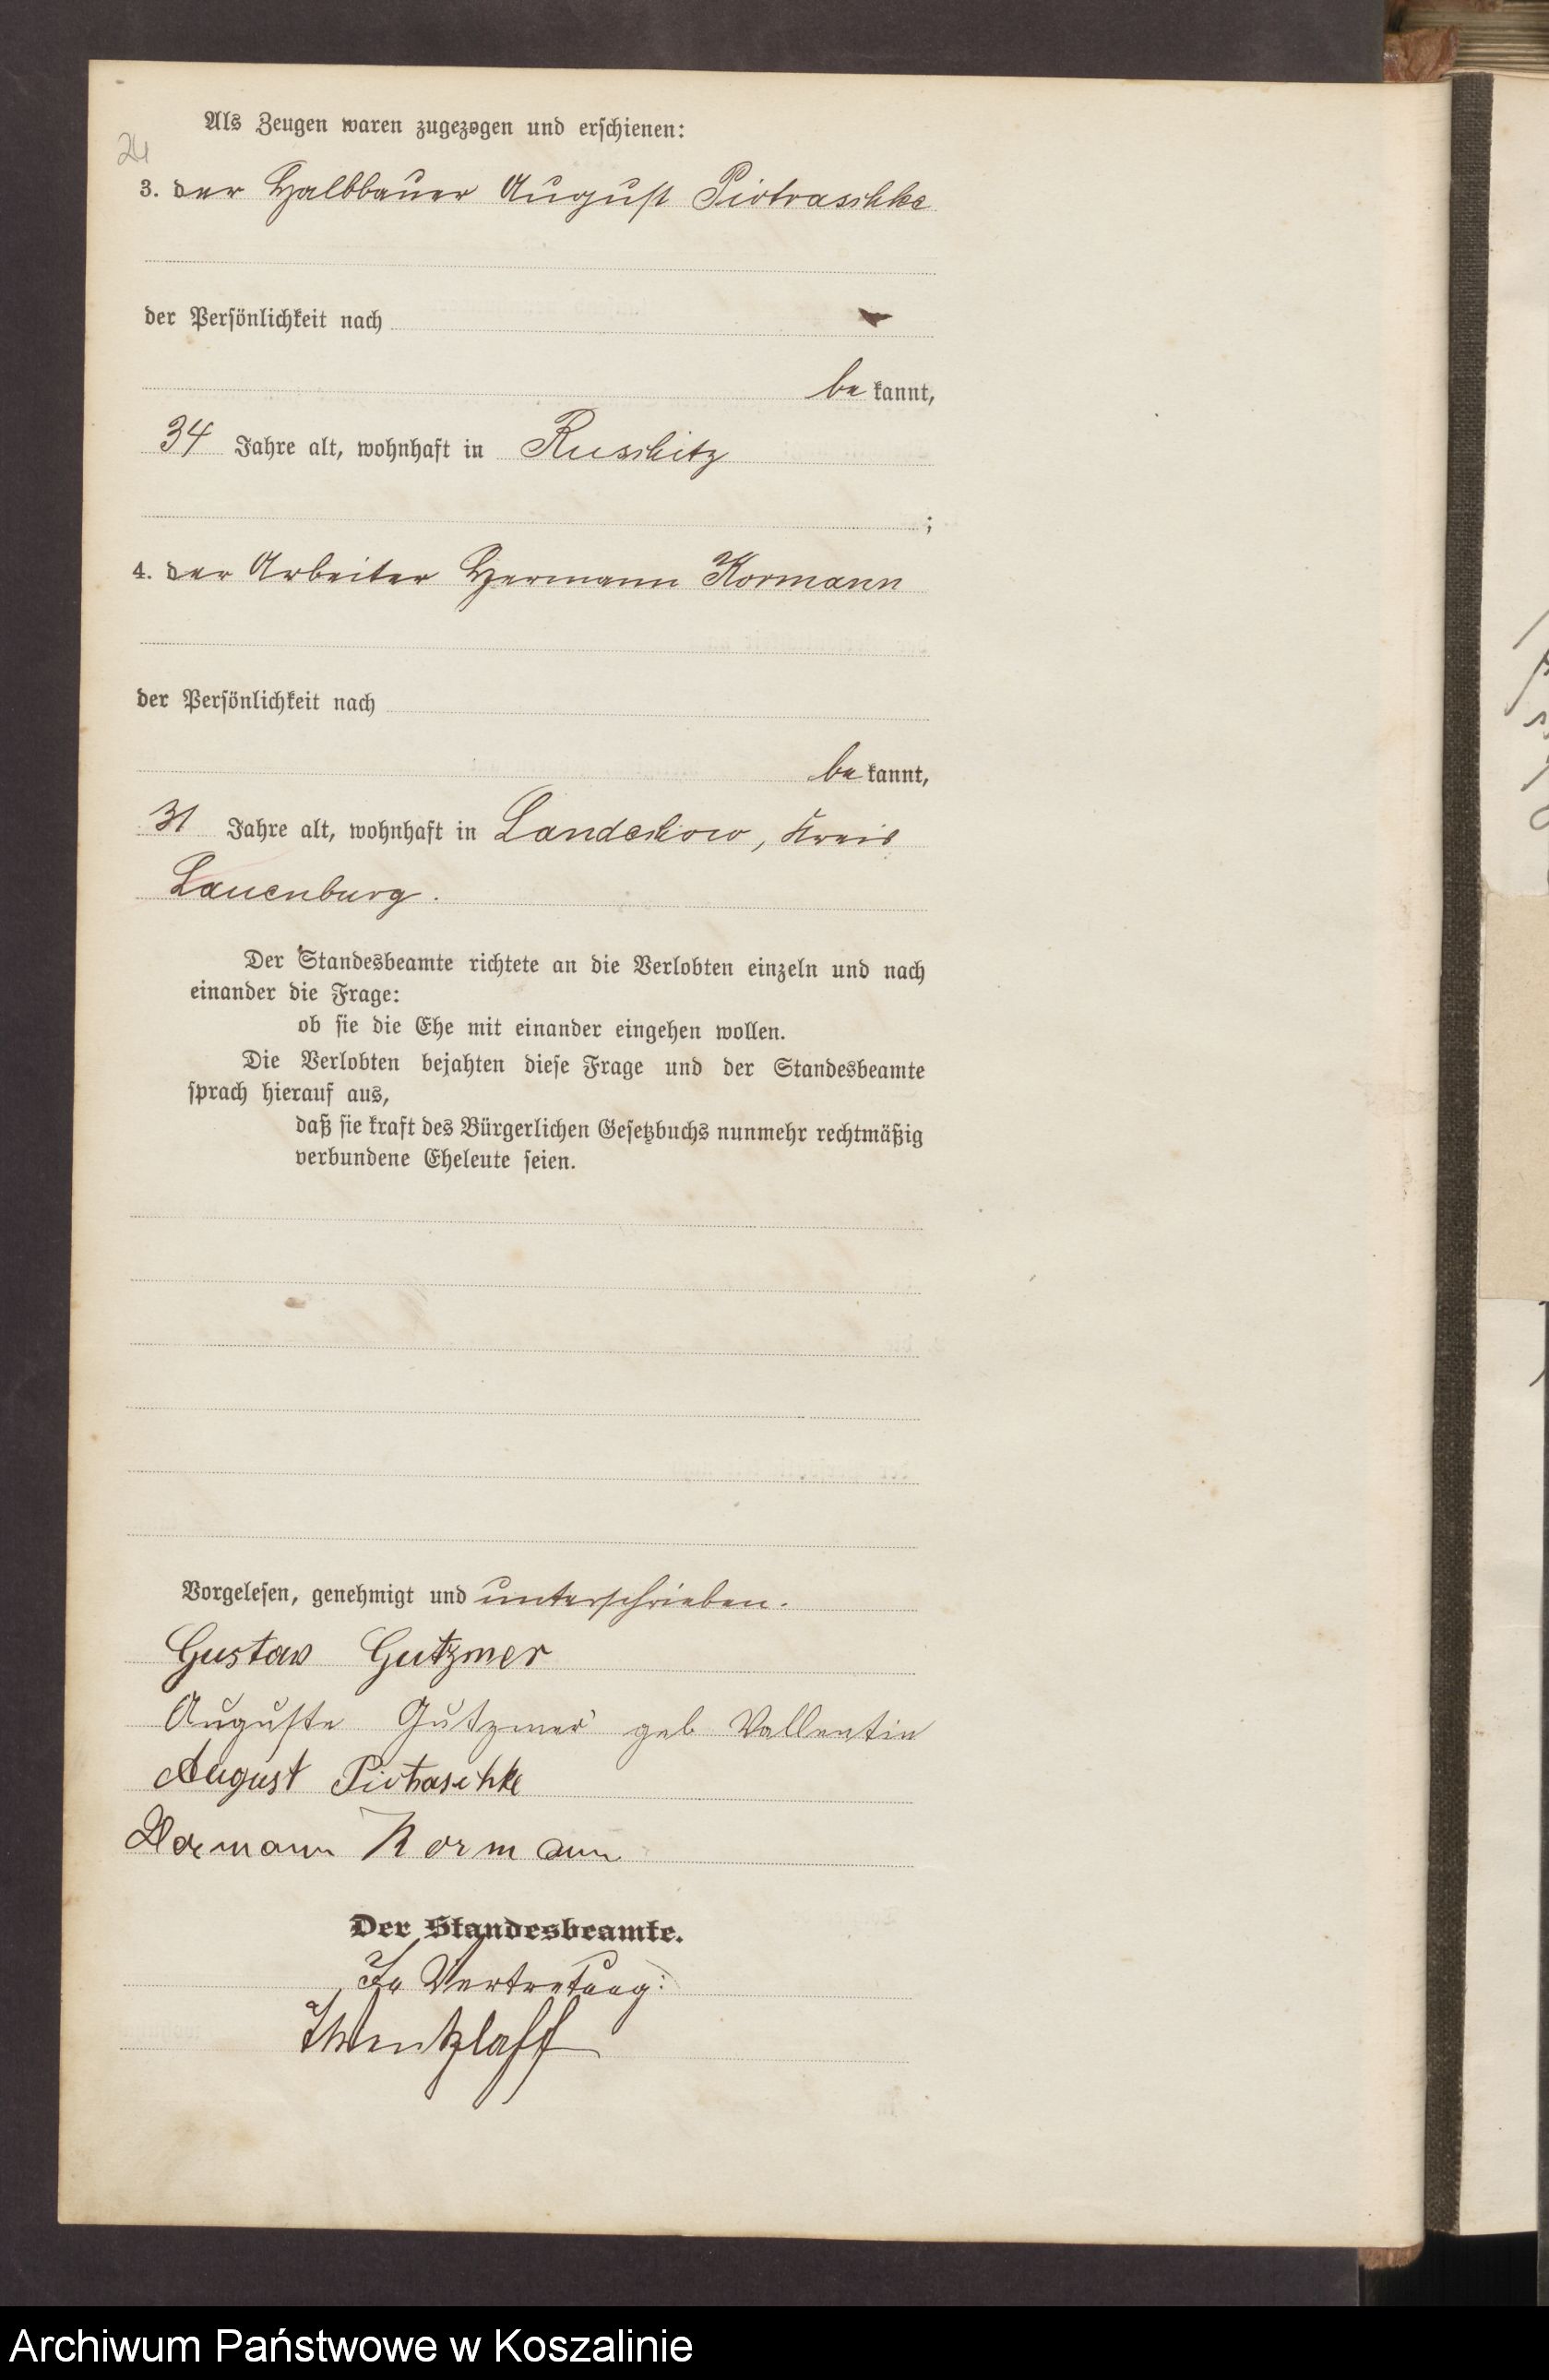 Als Zeugen waren zugezogen und erschienen:
3. der Halbbauer August Piotraschke
der Persönlichkeit nach
be kannt,
34 Jahre alt, wohnhaft in Ruschitz
;
4. der Arbeiter Hermann Kormann
der Persönlichkeit nach
be kannt,
31 Jahre alt, wohnhaft in Landechow, Kreis
Lauenburg.
Der Standesbeamte richtete an die Verlobten einzeln und nach
einander die Frage:
ob sie die Ehe mit einander eingehen wollen.
Die Verlobten bejahten diese Frage und der Standesbeamte
sprach hierauf aus,
daß sie kraft des Bürgerlichen Gesetzbuchs nunmehr rechtmäßig
verbundene Eheleute seien.
Vorgelesen, genehmigt und unterschrieben.
Gustav Gutzmer
Auguste Gutzmer geb Vallentin
August Piotraschke
Hermann Kormann
Der Standesbeamte.
In Vertretung:
Archiwum Państwowe w Koszalinie